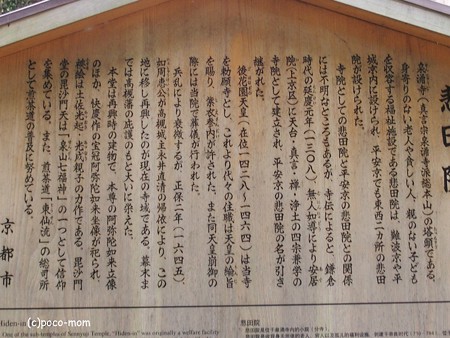 悲田院
泉涌寺（真言宗泉涌寺派総本山）の塔頭である。
身寄りのない老人や貧しい人、親のない子ども
を収容する福祉施設である悲田院は、難波京や平
城京内に設けられ、平安京でも東西二カ所の悲田
院が設けられた。
寺院としての悲田院と平安京の悲田院との関係
には不明なところもあるが、寺伝によると、鎌倉
時代の延慶元年（一三〇八）無人如導により安居
院（上京区）に天台・真言・禅・浄土の四宗兼学の
寺院として建立され、平安京の悲田院の名が引き
継がれた。
後花園天皇（在位一四二八〜一四六四）は当寺
を勅願寺とし、これより代々の住職は天皇の綸旨
を賜り、紫衣参内が許された。また同天皇崩御の
際には当院で葬儀が行われた。
兵乱により衰微するが、正保二年（一六四五）、
如周恵公が高槻城主永井直清の帰依により、この
地に移し再興したのが現在の寺域である。幕末ま
では高槻藩の庇護のもと大いに栄えた。
本堂は再興時の建物で、本尊の阿弥陀如来立像
のほか、快慶作の宝冠阿弥陀如来坐像が祀られ、
襖絵は土佐光起・光成親子の力作である。毘沙門
堂の毘沙門天は「泉山七福神」の一つとして信仰
を集めている。また、煎茶道「東仙流」の総司所
として煎茶道の普及に努めている。
京都市
Hiden-in
One of the sub-temples of Sennyuji Temple, "Hiden-in" was originally a welfare facility
悲田院
(c)poco-mom